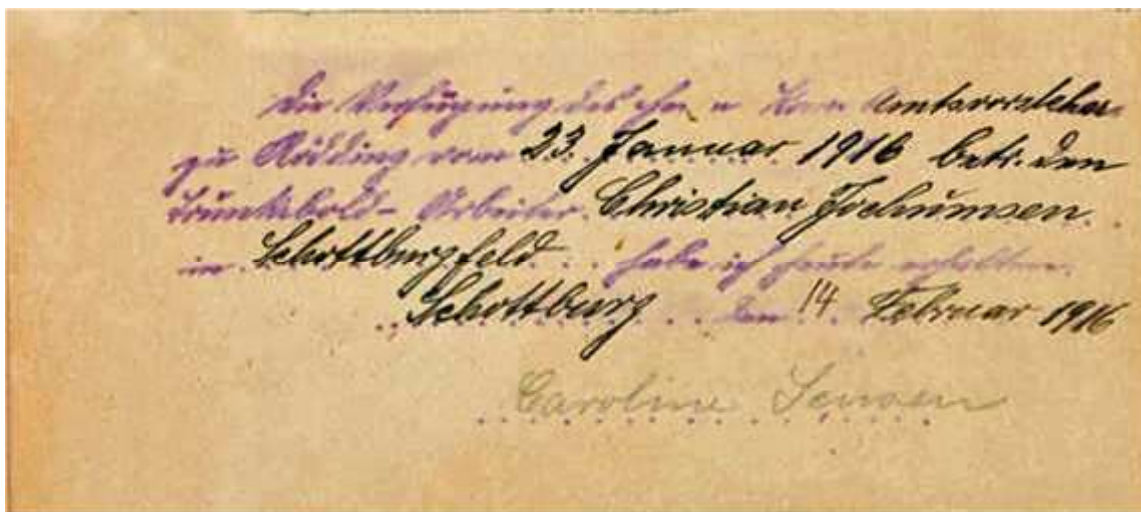 Die Verfügung des Herrn Amtsvorsteher
zu Rödding vom 23. Januar 1916 betr. den
Trunkenbold - Arbeiter Christian Jochumsen
in Schottburgfeld habe ich heute erhalten.
Schottburg den 14 Februar 1916
Caroline Jensen